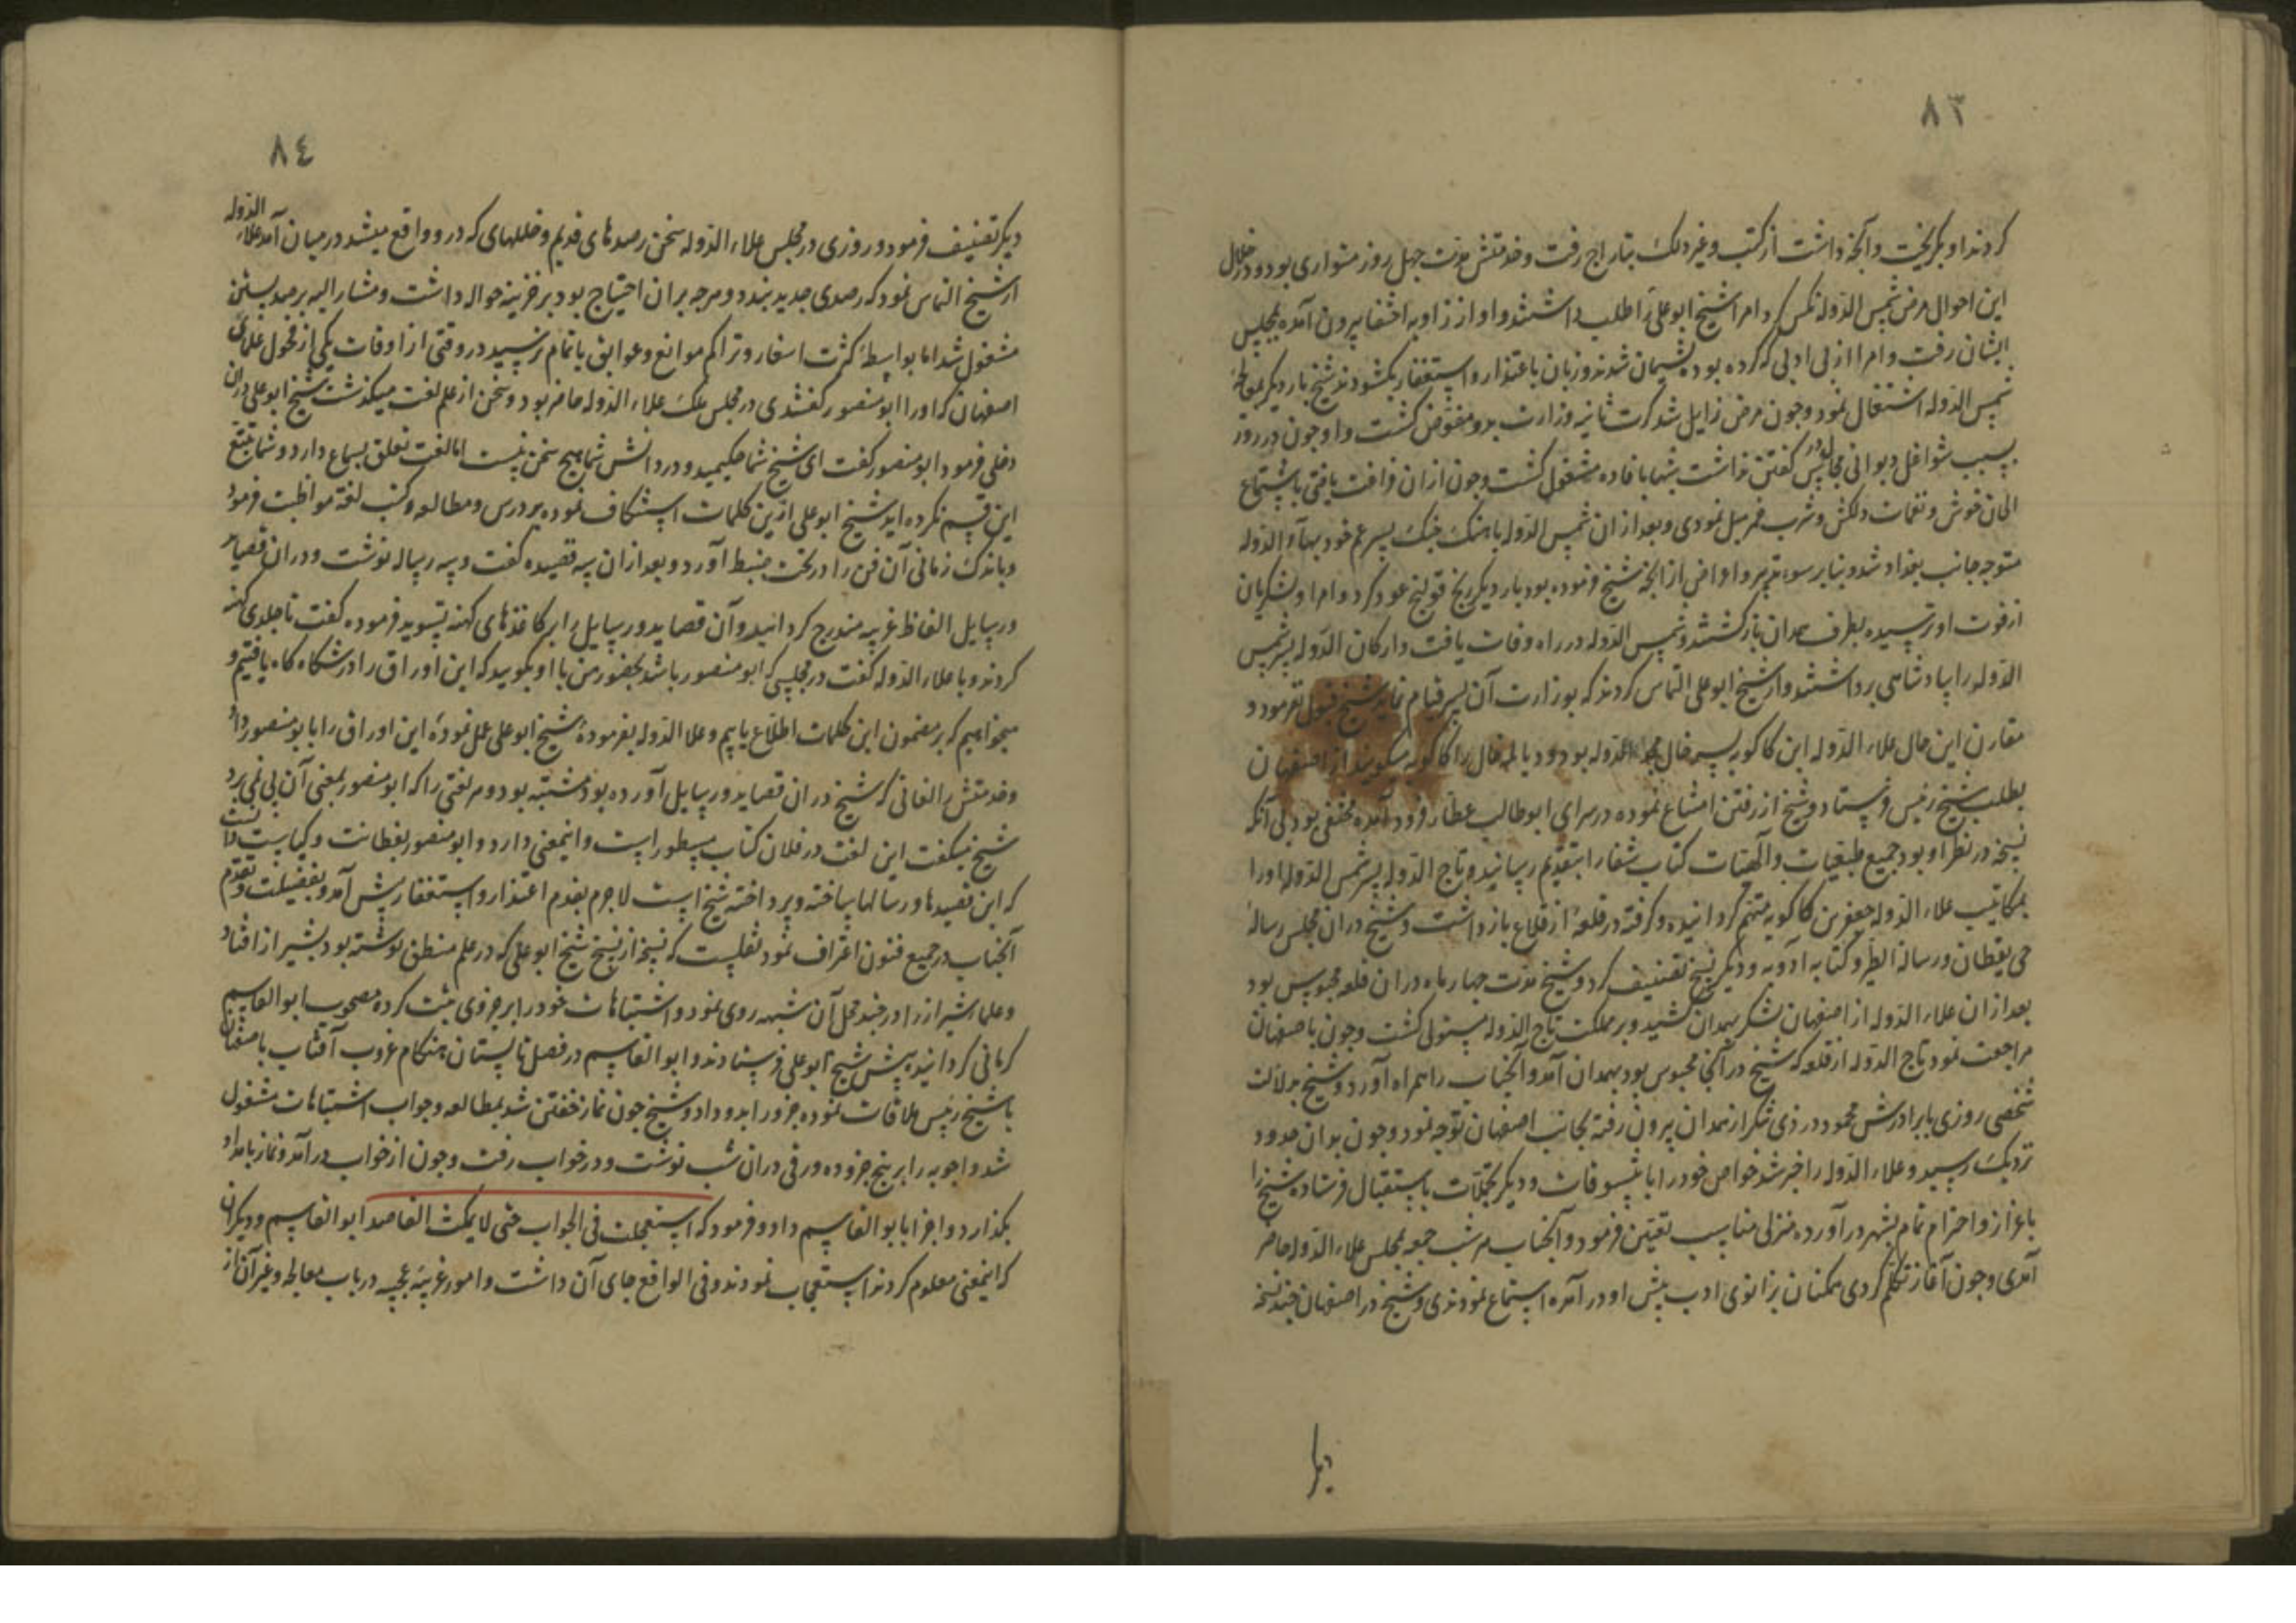 ٨٣
کردند او بکریخت و آنجه داشت از کتب و غیر ذلک بتاراج رفت و خدمتش مدت جهل روز متواری بود و در خلال
این احوال مرض شمس الدوله نکس کرد امرا شیخ ابو علی را طلب داشتند و او از زاویه اختفا بیرون آمده بمجلس
ایشان رفت و امرا از بی ادبی که کرده بودند پشیمان شدند و زبان باعتذار و استغفار بکشودند شیخ بار دیکر بمعالجهٔ
شمس الدوله اشتغال نمود و جون مرض زایل شد کرت ثانیه وزارت بدو مفوض کشت و او جون در روز
بسبب شواغل دیوانی مجال درس کفتن نداشت شبها بافاده مشغول کشت و جون از ان فراغت یافتی باستماع
الحان خوش و نغمات دلکش و شرب خمر میل نمودی و بعد از ان شمس الدوله باهنک جنک پسر عم خود بهاء الدوله
متوجه جانب بغداد شد و بنابر سوء تدبیر و اعراض از آنجه شیخ فرموده بود بار دیکر رنج قولنج عود کرد و امرا و لشکریان
از فوت او ترسیده بطرف همدان باز کشتند و شمس الدوله در راه وفات یافت و ارکان الدوله پسر شمس
الدوله را بپادشاهی برداشتند و از شیخ ابو علی التماس کردند که بوزارت آن پسر قیام نماید شیخ قبول نفرمود و
مقارن این حال علاء الدوله ابن کاکویه پسر خال مجد الدوله بود و دیالمه خال را کاکویه میکویند از اصفهان
بطلب شیخ رئیس فرستاد و شیخ از رفتن امتناع نموده در سرای ابو طالب عطار فرود آمده مختفی بود بی آنکه
نسخه در نظر او بود جمیع طبیعیات و الهیات کتاب شفا را بتقدیم رسانید و تاج الدوله پسر شمس الدوله او را
بمکاتیب علاء الدوله جعفر بن کاکویه متهم کردانیده و کرفته در قلعهٔ از قلاع بازداشت و شیخ در ان مجلس رسالهٔ
حی یقظان و رساله الطیر و کتاب ادویه و دیکر نسخ تصنیف کرد و شیخ مدت جهار ماه در ان قلعه محبوس بود
بعد از ان علاء الدوله از اصفهان لشکر بهمدان کشید و بر مملکت تاج الدوله مستولی کشت و جون باصفهان
مراجعت نمود تاج الدوله از قلعه که شیخ در آنجا محبوس بود بهمدان آمد و آنجناب را همراه آورد و شیخ بدلالت
شخصی روزی با برادرش محمود در زی تنکر از همدان بیرون رفته بجانب اصفهان توجه نمود و جون بدان حدود
نزدیک رسید و علاء الدوله را خبر شد خواص خود را با تنسوقات و دیکر تجملات باستقبال فرستاده شیخ را
باعزاز و احترام تمام بشهر در آورده منزلی مناسب تعیین فرمود و آنجناب هر شب جمعه بمجلس علاء الدوله حاضر
آمدی و جون آغاز تکلم کردی همکنان بزانوی ادب پیش او در آمده استماع نمودندی و شیخ در اصفهان جند نسخه
دیکر
٨٤
دیکر تصنیف فرمود و روزی در مجلس علاء الدوله سخن رصدهای قدیم و خللهای که درو واقع میشد در میان آمد علاء الدوله
از شیخ التماس نمود که رصدی جدید بندد و هرجه بران احتیاج بود بر خزینه حواله داشت و مشار الیه برصد بستن
مشغول شد اما بواسطهٔ کثرت اسفار و تراکم موانع و عوایق باتمام نرسید در وقتی از اوقات یکی از فحول علمای
اصفهان که او را ابو منصور کفتندی در مجلس ملک علاء الدوله حاضر بود و سخن از علم لغت میکذشت شیخ ابو علی در ان
دخلی فرمود ابو منصور کفت ای شیخ شما حکیمید و در دانش شما هیچ سخن نیست اما لغت تعلق بسماع دارد و شما تتبع
این قسم نکرده اید شیخ ابو علی ازین کلمات استنکاف نموده بر درس و مطالعه و کتب لغة مواظبت فرمود
و باندک زمانی آن فن را در تحت ضبط آورد و بعد از ان سه قصیده کفت و سه رساله نوشت و در ان قصاید
و رسایل الفاظ غریبه مندرج کردانید و آن قصاید و رسایل را بر کاغذهای کهنه تسوید فرموده کفت تا جلدی کهنه
کردند و با علاء الدوله کفت در مجلسی که ابو منصور باشد بحضور من با او بکویید که این اوراق را در شکارکاه یافتیم و
میخواهیم که بر مضمون این کلمات اطلاع یابیم و علاء الدوله بفرمودهٔ شیخ ابو علی عمل نموده این اوراق را بابو منصور داد
و خدمتش را لغاتی که شیخ در ان قصاید و رسایل آورده بود مشتبه بود و هر لغتی را که ابو منصور بمعنی آن پی نمی برد
شیخ میکفت این لغت در فلان کتاب مسطور است و اینمعنی دارد و ابو منصور بفطانت و کیاست دانست
که این قصیدها و رسالها ساخته و پرداخته شیخ است لاجرم بقدم اعتذار و استغفار پیش آمد و بفضیلت و تقدم
آنجناب در جمیع فنون اعتراف نمود نقلست که نسخهٔ از نسخ شیخ ابو علی که در علم منطق نوشته بود بشیراز افتاد
و علماء شیراز را در جند محل آن شبهه روی نمود و اشتباهات خود را بر جزوی ثبت کرده مصحوب ابو القاسم
کرمانی کردانیده پیش شیخ ابو علی فرستادند و ابو القاسم در فصل تابستان هنکام غروب آفتاب باصفهان
با شیخ رئیس ملاقات نموده جزو را بدو داد و شیخ جون نماز خفتن شد بمطالعه و جواب اشتباهات مشغول
شد و اجوبه را بر پنج جزو ده ورقی دران شب نوشت و در خواب رفت و جون از خواب در آمد و نماز بامداد
بکذارد و اجزا بابو القاسم داد و فرمود که استعجلت فی الجواب حتی لا یمکث القاصد ابو القاسم و دیکران
که اینمعنی معلوم کردند استعجاب نمودند و فی الواقع جای آن داشت و امور غریبه عجیبه در باب معالجه و غیر آن از